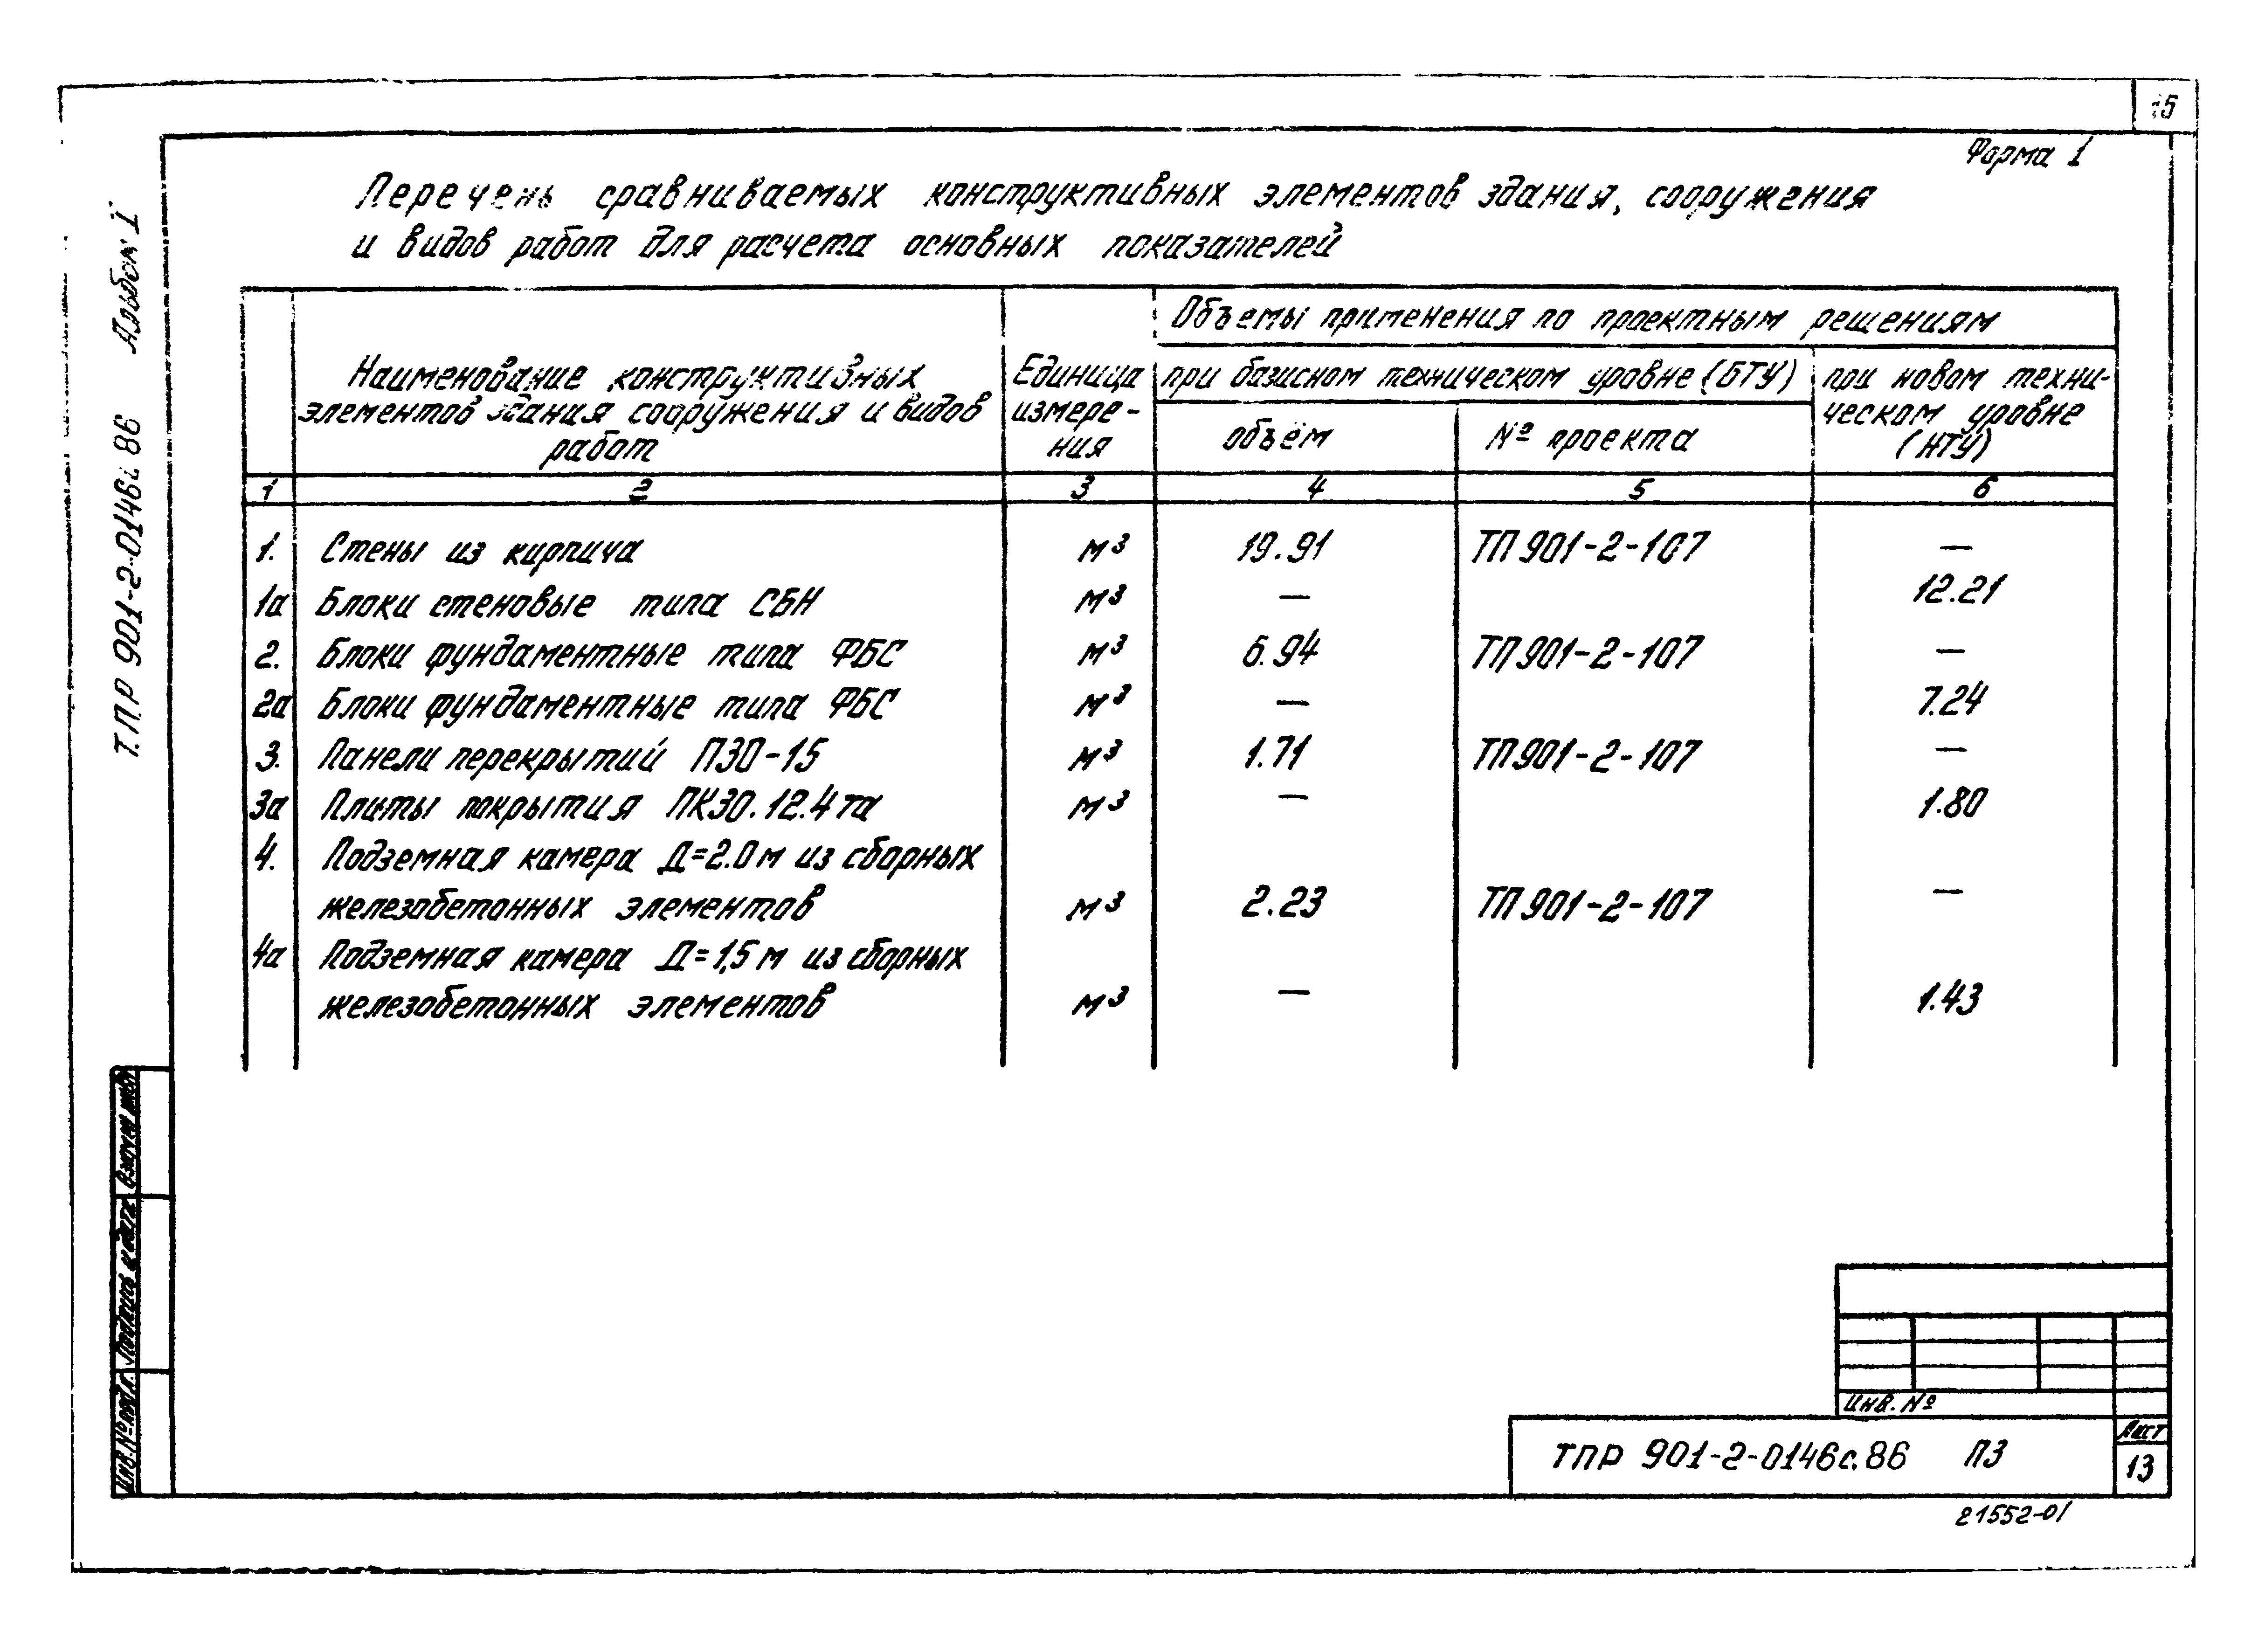 15
Форма 1
Перечень сравниваемых конструктивных элементов здания, сооружения
и видов работ для расчета основных показателей
Наименование конструктивных
элементов здания сооружения и видов
работ
Единица
измере-
ния
Объемы применения по проектным решениям
при базисном техническом уровне (БТУ)
объём
№ проекта
при новом техни-
ческом уровне
(НТУ)
1 2 3 4 5 6
1. Стены из кирпича м³ 19.91 ТП 901-2-107 —
1а Блоки стеновые типа СБН м³ — 12.21
2. Блоки фундаментные типа ФБС м³ 6.94 ТП 901-2-107 —
2а Блоки фундаментные типа ФБС м³ — 7.24
3. Панели перекрытий П30-15 м³ 1.71 ТП 901-2-107 —
3а Плиты покрытия ПК30.12.4та м³ — 1.80
4. Подземная камера Д=2.0м из сборных
железобетонных элементов м³ 2.23 ТП 901-2-107 —
4а Подземная камера Д=1,5м из сборных
железобетонных элементов м³ — 1.43
Т.П.Р 901-2-0146с.86 Альбом I
Инв.№ подл. Подпись и дата Взамен инв.
Инв. №
ТПР 901-2-0146с.86 ПЗ
Лист
13
21552-01